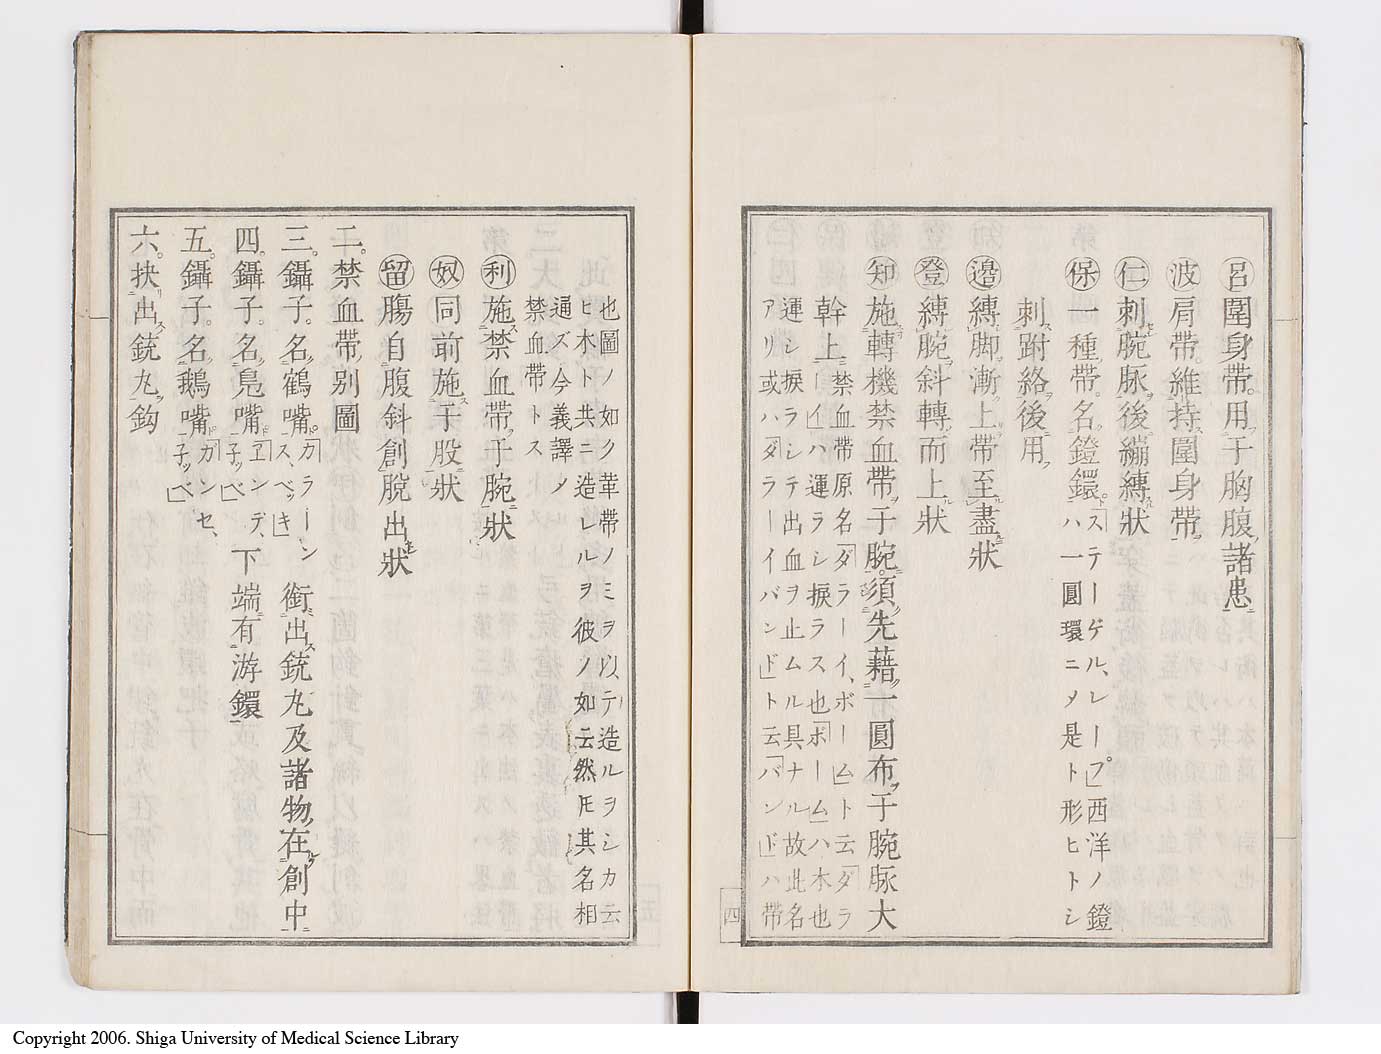 ㊀呂圍身帶。用于胸腹諸患
波肩帶。維持圍身帶
仁刺腕脈後繃縛狀
保一種帶。名鐙鐶「ステーゲル、レープ」西洋ノ鐙
ハ一圓環ニメ是ト形ヒトシ
刺跗絡後用
邉縛脚漸上帶至盡狀
登縛腕斜轉而上狀
知施轉機禁血帶于腕。須先藉一圓布于腕脈大
幹上禁血帶原名「ダラーイ、ボーム」ト云「ダラ
ーイ」ハ運ラシ捩ラス也「ボーム」ハ、木也
運シ捩ラシテ出血ヲ止ムル具ナル故此名
アリ或ハ「ダラーイバンド」ト云「バンド」ハ帶
四
也圖ノ如ク革帶ノミヲ以テ造ルヲシカ云
ヒ木ト共ニ造レルヲ彼ノ如云然𪜈其名相
通ズ今義譯ノ
禁血帶トス
利施禁血帶于腕狀
奴同前施于股狀
留腸自腹斜創脫出狀
二。禁血帶別圖
三。鑷子。名鶴嘴「カラーン
ス、ベッキ」銜出銃丸及諸物在創中
四。鑷子。名鳧嘴「ヱンデ、
子ッベ」下端有游鐶
五。鑷子。名鵝嘴「ガンセ、
子ッベ」
六。抉出銃丸鈎
五
Copyright 2006. Shiga University of Medical Science Library